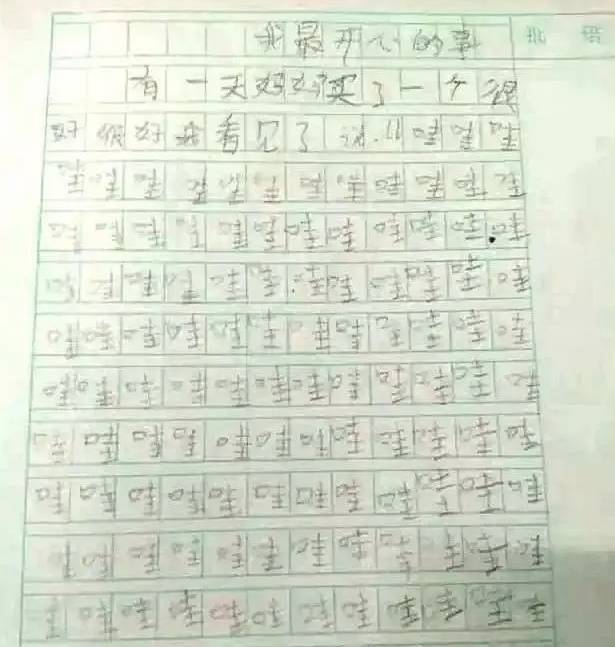 我最开心的事
有一天妈妈买了一个很
好很好我看见了说:“哇哇哇
哇哇哇哇哇哇哇哇哇哇哇哇
哇哇哇哇哇哇哇哇哇哇哇哇
哇哇哇哇哇哇哇哇哇哇哇哇
哇哇哇哇哇哇哇哇哇哇哇哇
哇哇哇哇哇哇哇哇哇哇哇哇
哇哇哇哇哇哇哇哇哇哇哇哇
哇哇哇哇哇哇哇哇哇哇哇哇
哇哇哇哇哇哇哇哇哇哇哇哇
哇哇哇哇哇哇哇哇哇哇哇哇